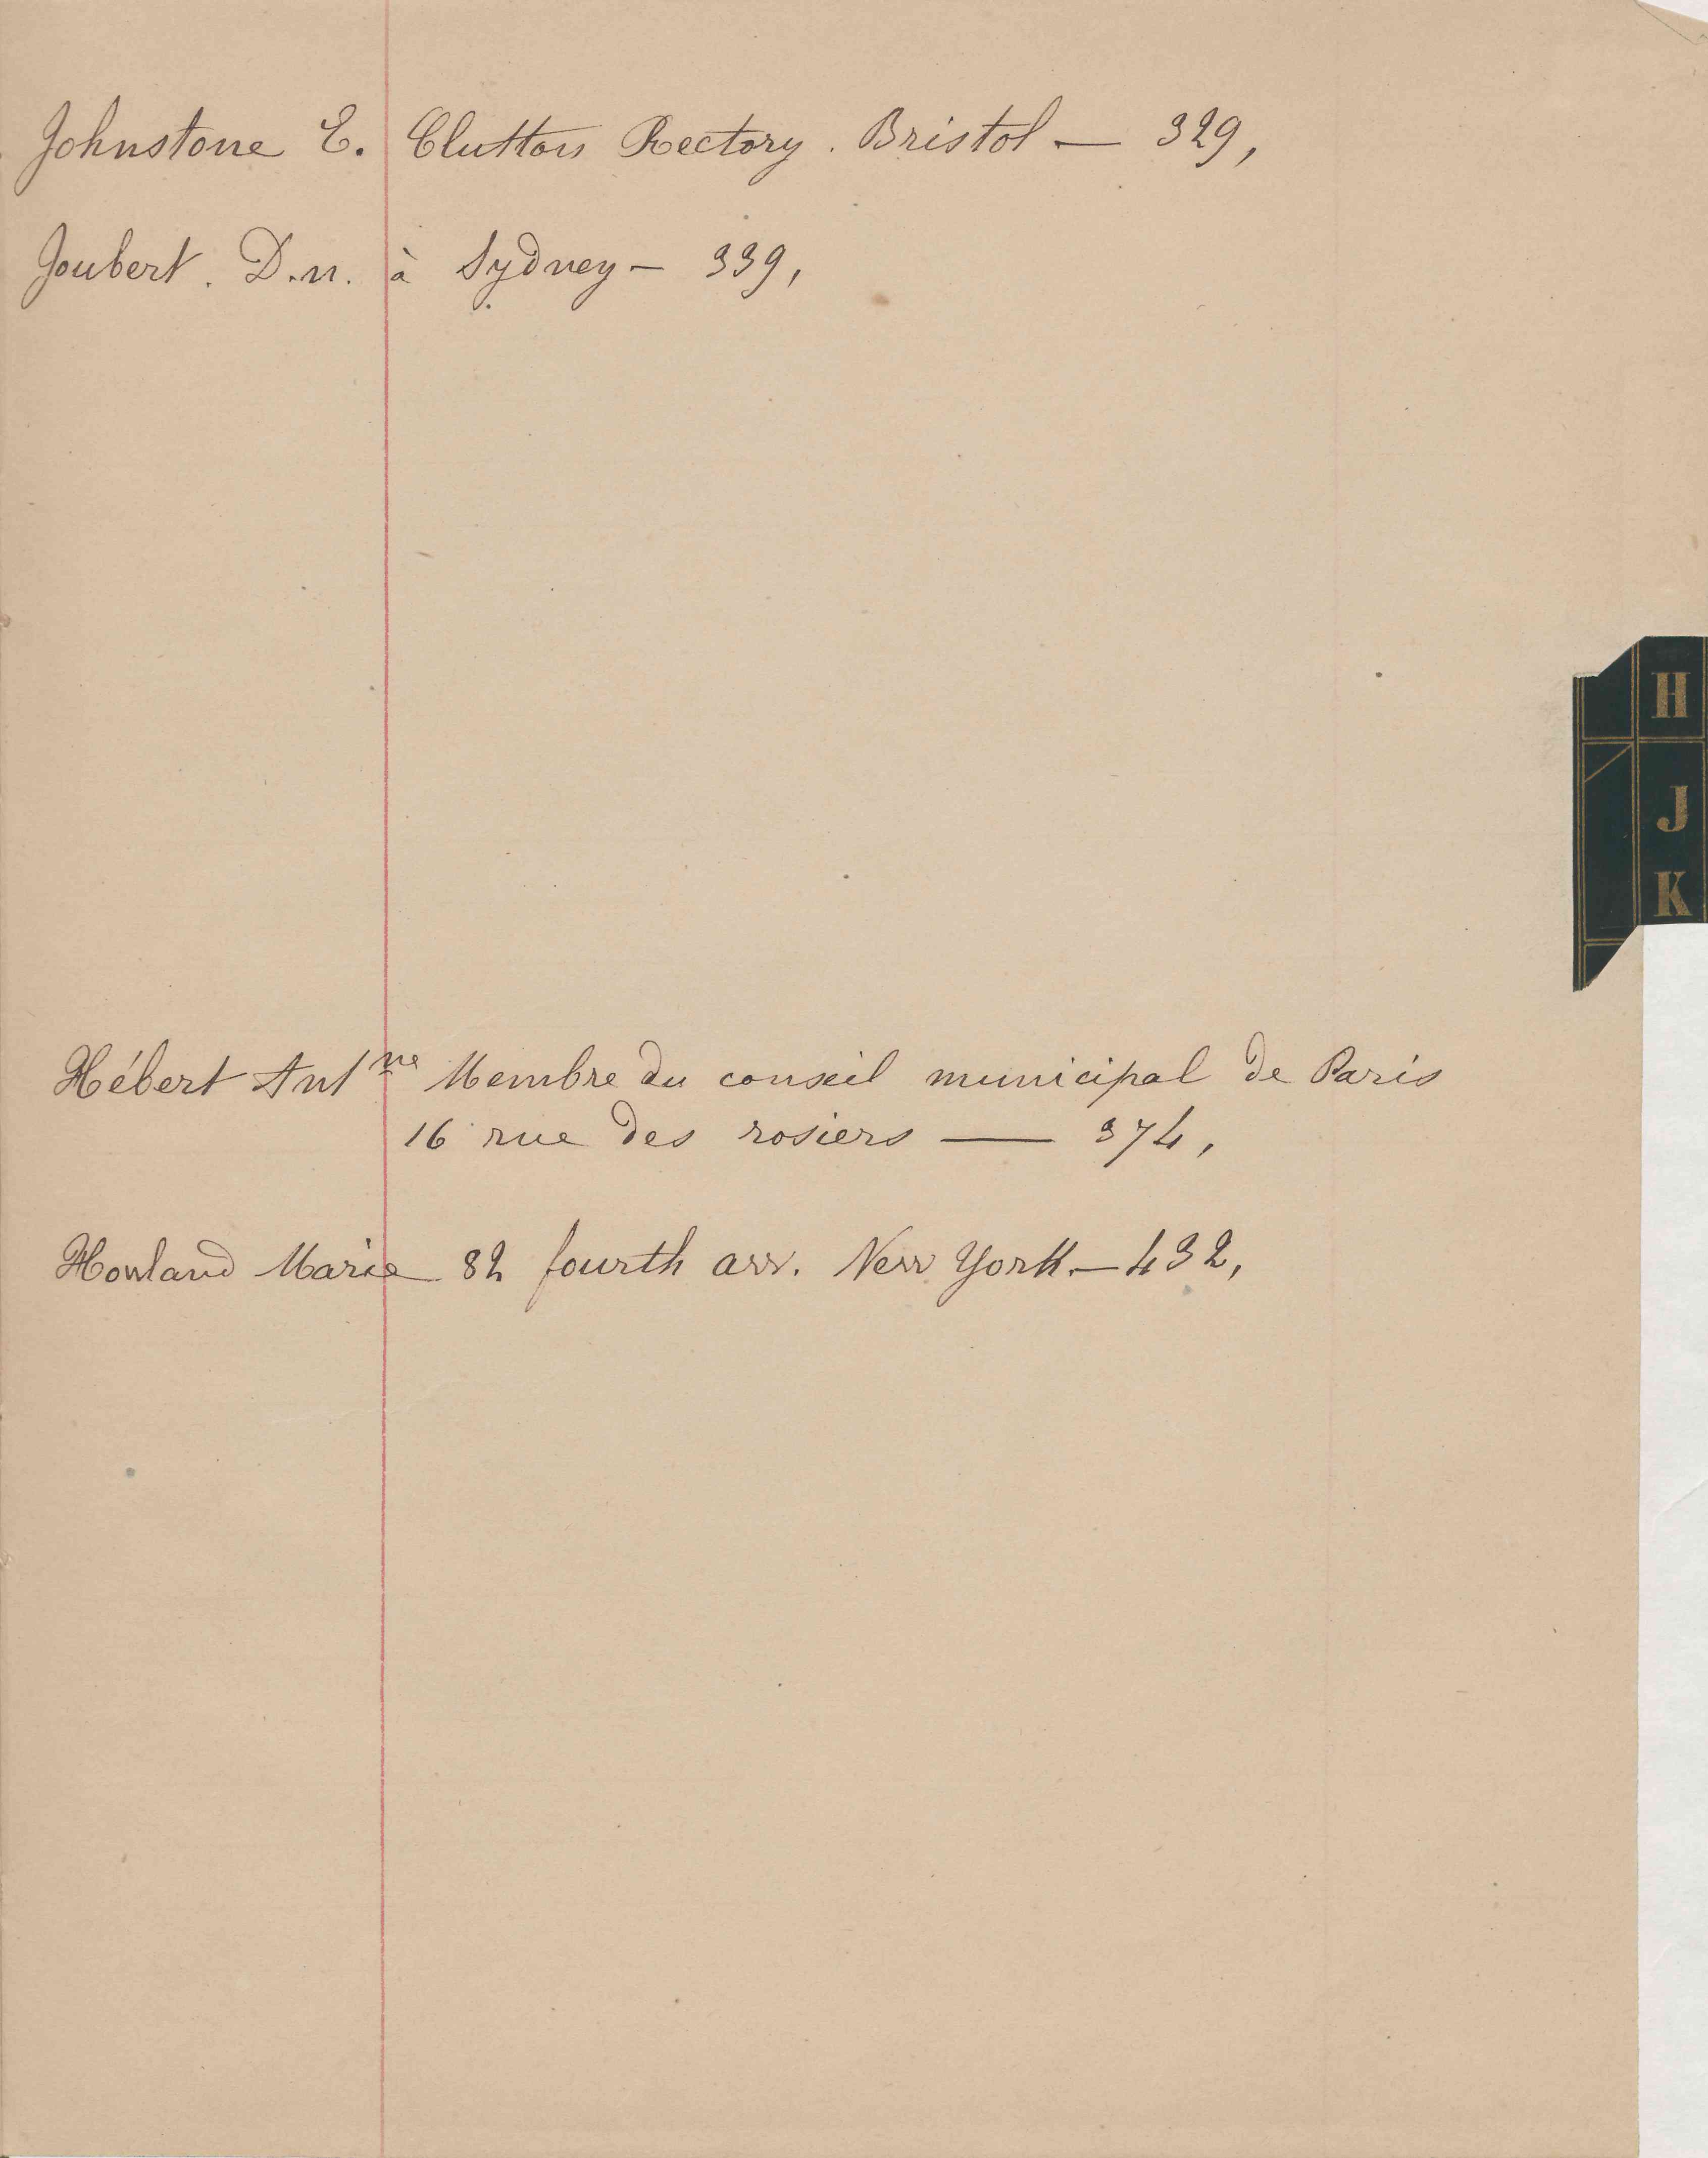 Johnstone E. Clutton Rectory. Bristol — 329,
Joubert. D.n. à Sydney — 339,
H
J
K
Hébert Ant^ne Membre du conseil municipal de Paris
16 rue des rosiers — 374,
Howland Marie 82 fourth avv. New York — 432,